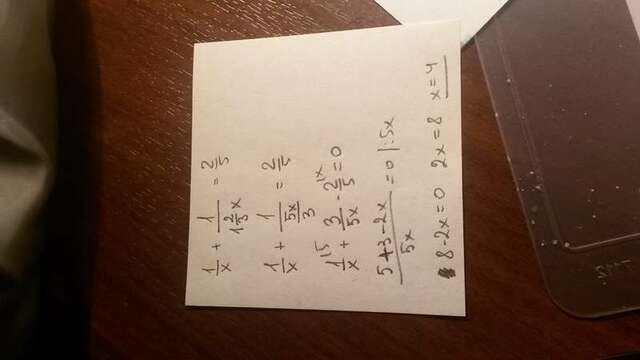 1/x + 1/(1 2/3 x) = 2/5
1/x + 1/(5x/3) = 2/5
1/x^15 + 3/5x - 2/5^1x = 0
(5+3-2x)/5x = 0 |:5x
8-2x=0 2x=8 x=4